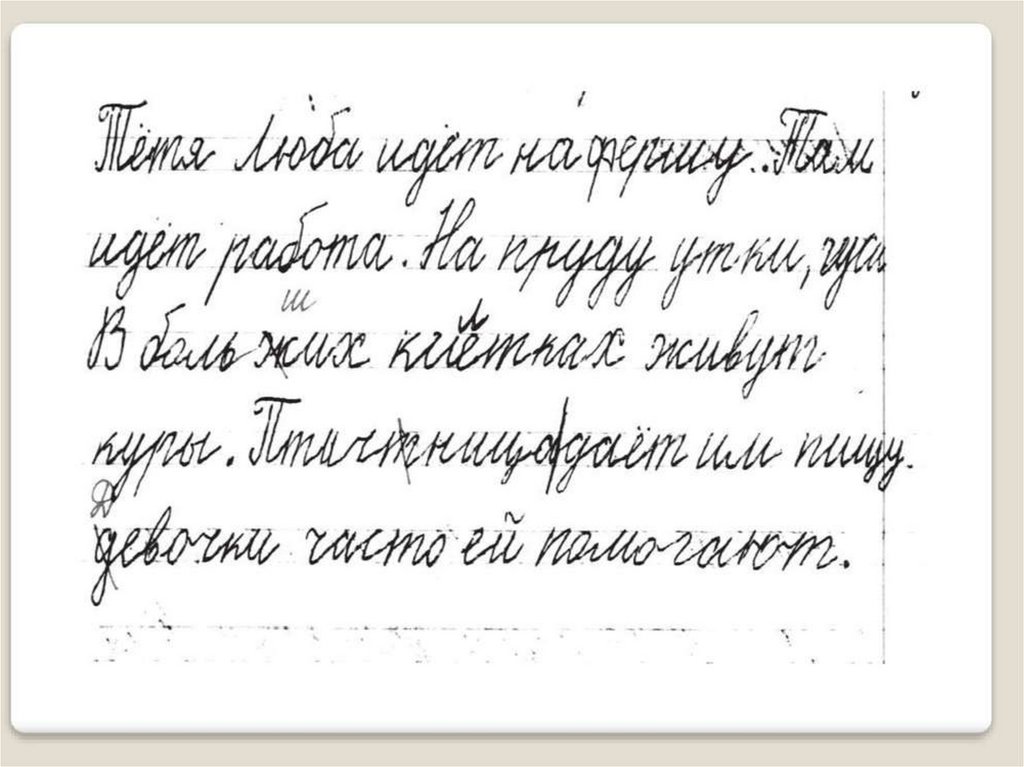 Тётя Люба идёт на ферму. Там
идёт работа. На пруду утки, гуси
ш
В больжих клетках живут
куры. Птичтница даёт им пищу.
Д
девочки часто ей помогают.